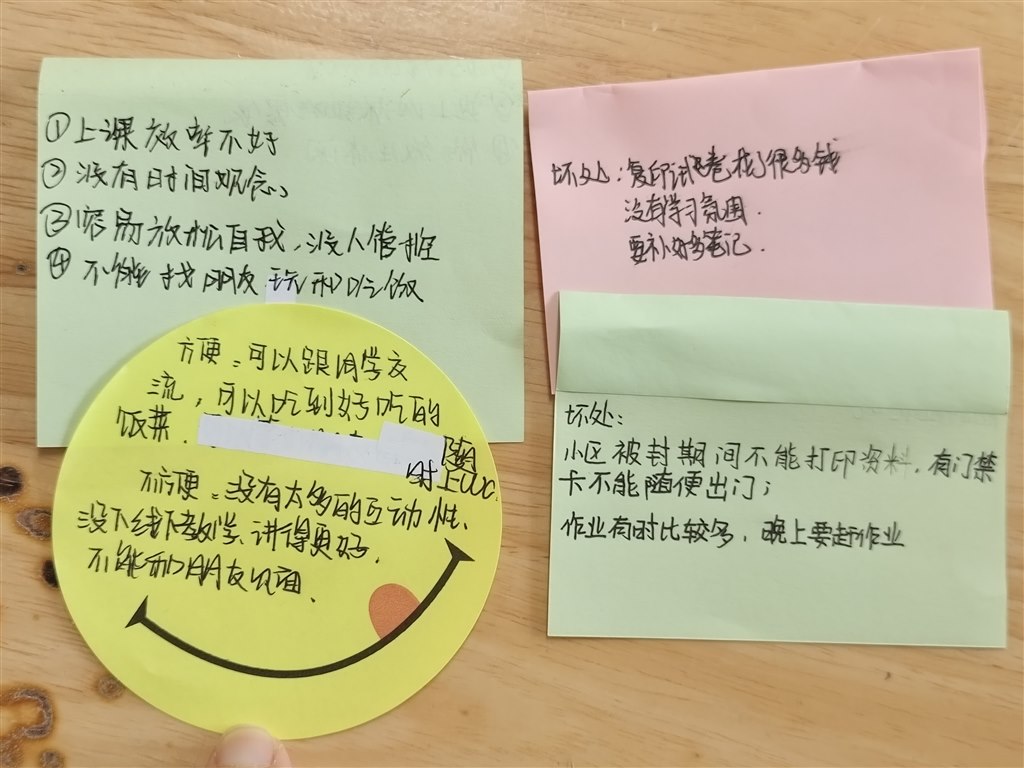 ①上课效率不好
②没有时间观念
③容易放松自我,没人管班
④不能找朋友玩和吃饭
方便:可以跟同学交
流,可以吃到好吃的
饭菜.
随
时上WC.
不方便:没有太多的互动性、
没下线下教学、讲得更好.
不能和朋友见面.
坏处:复印试卷花了很多钱
没有学习氛围.
要补好多笔记.
坏处:
小区被封期间不能打印资料,有门禁
卡不能随便出门;
作业有时比较多,晚上要赶作业